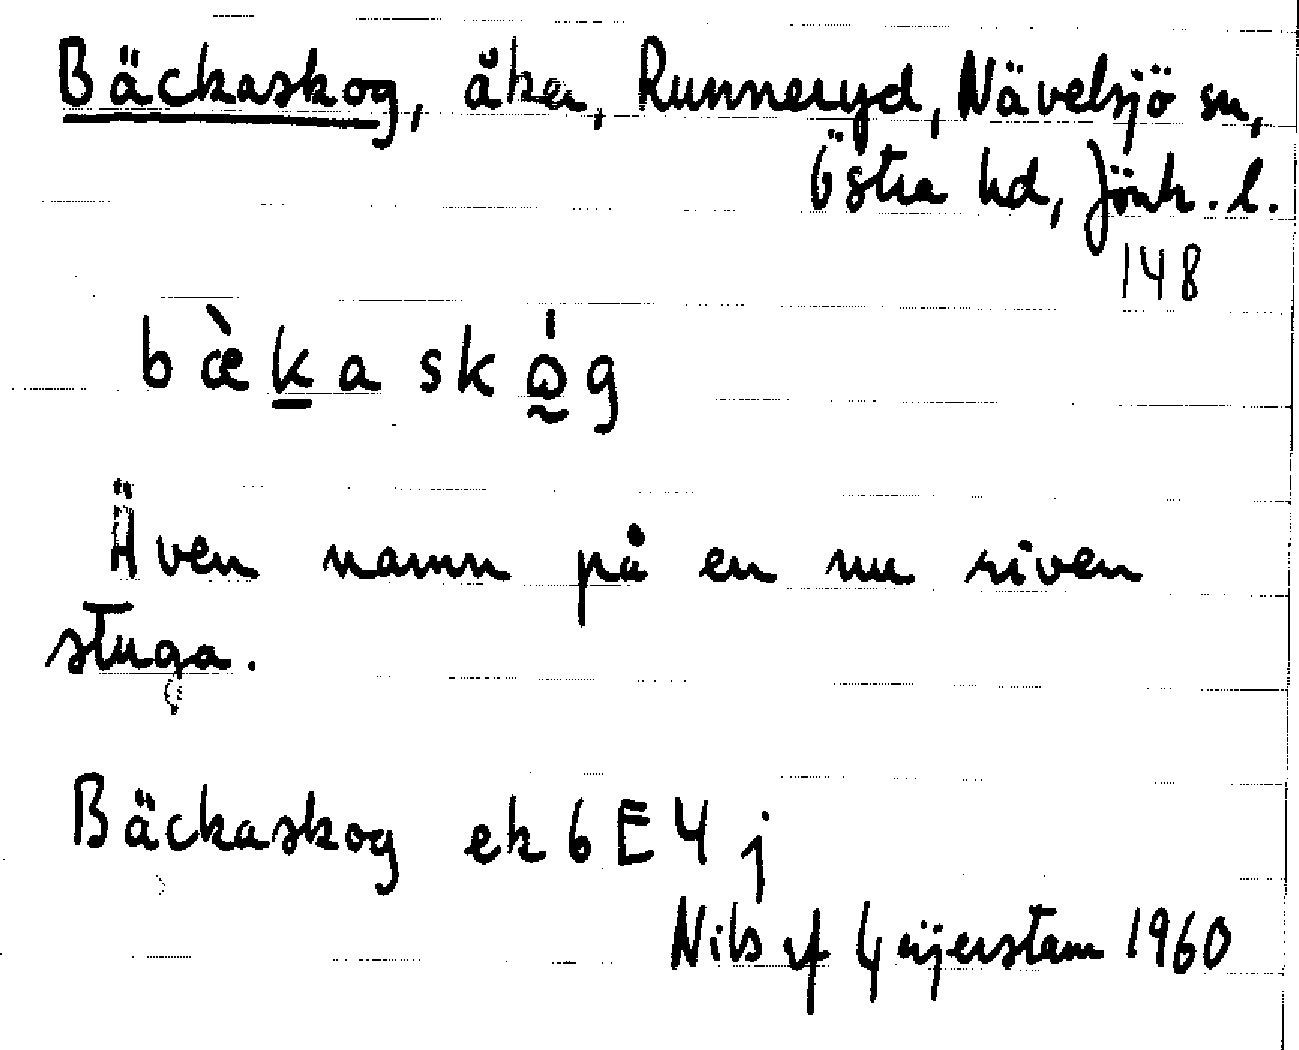 Bäckaskog, åker, Runneryd, Nävelsjö sn,
Östra hd, Jönk. l.
148
bæ̀ḵaskǿ̰g
Även namn på en nu riven
stuga.
Bäckaskog ek 6E4j
Nils af Geijerstam 1960